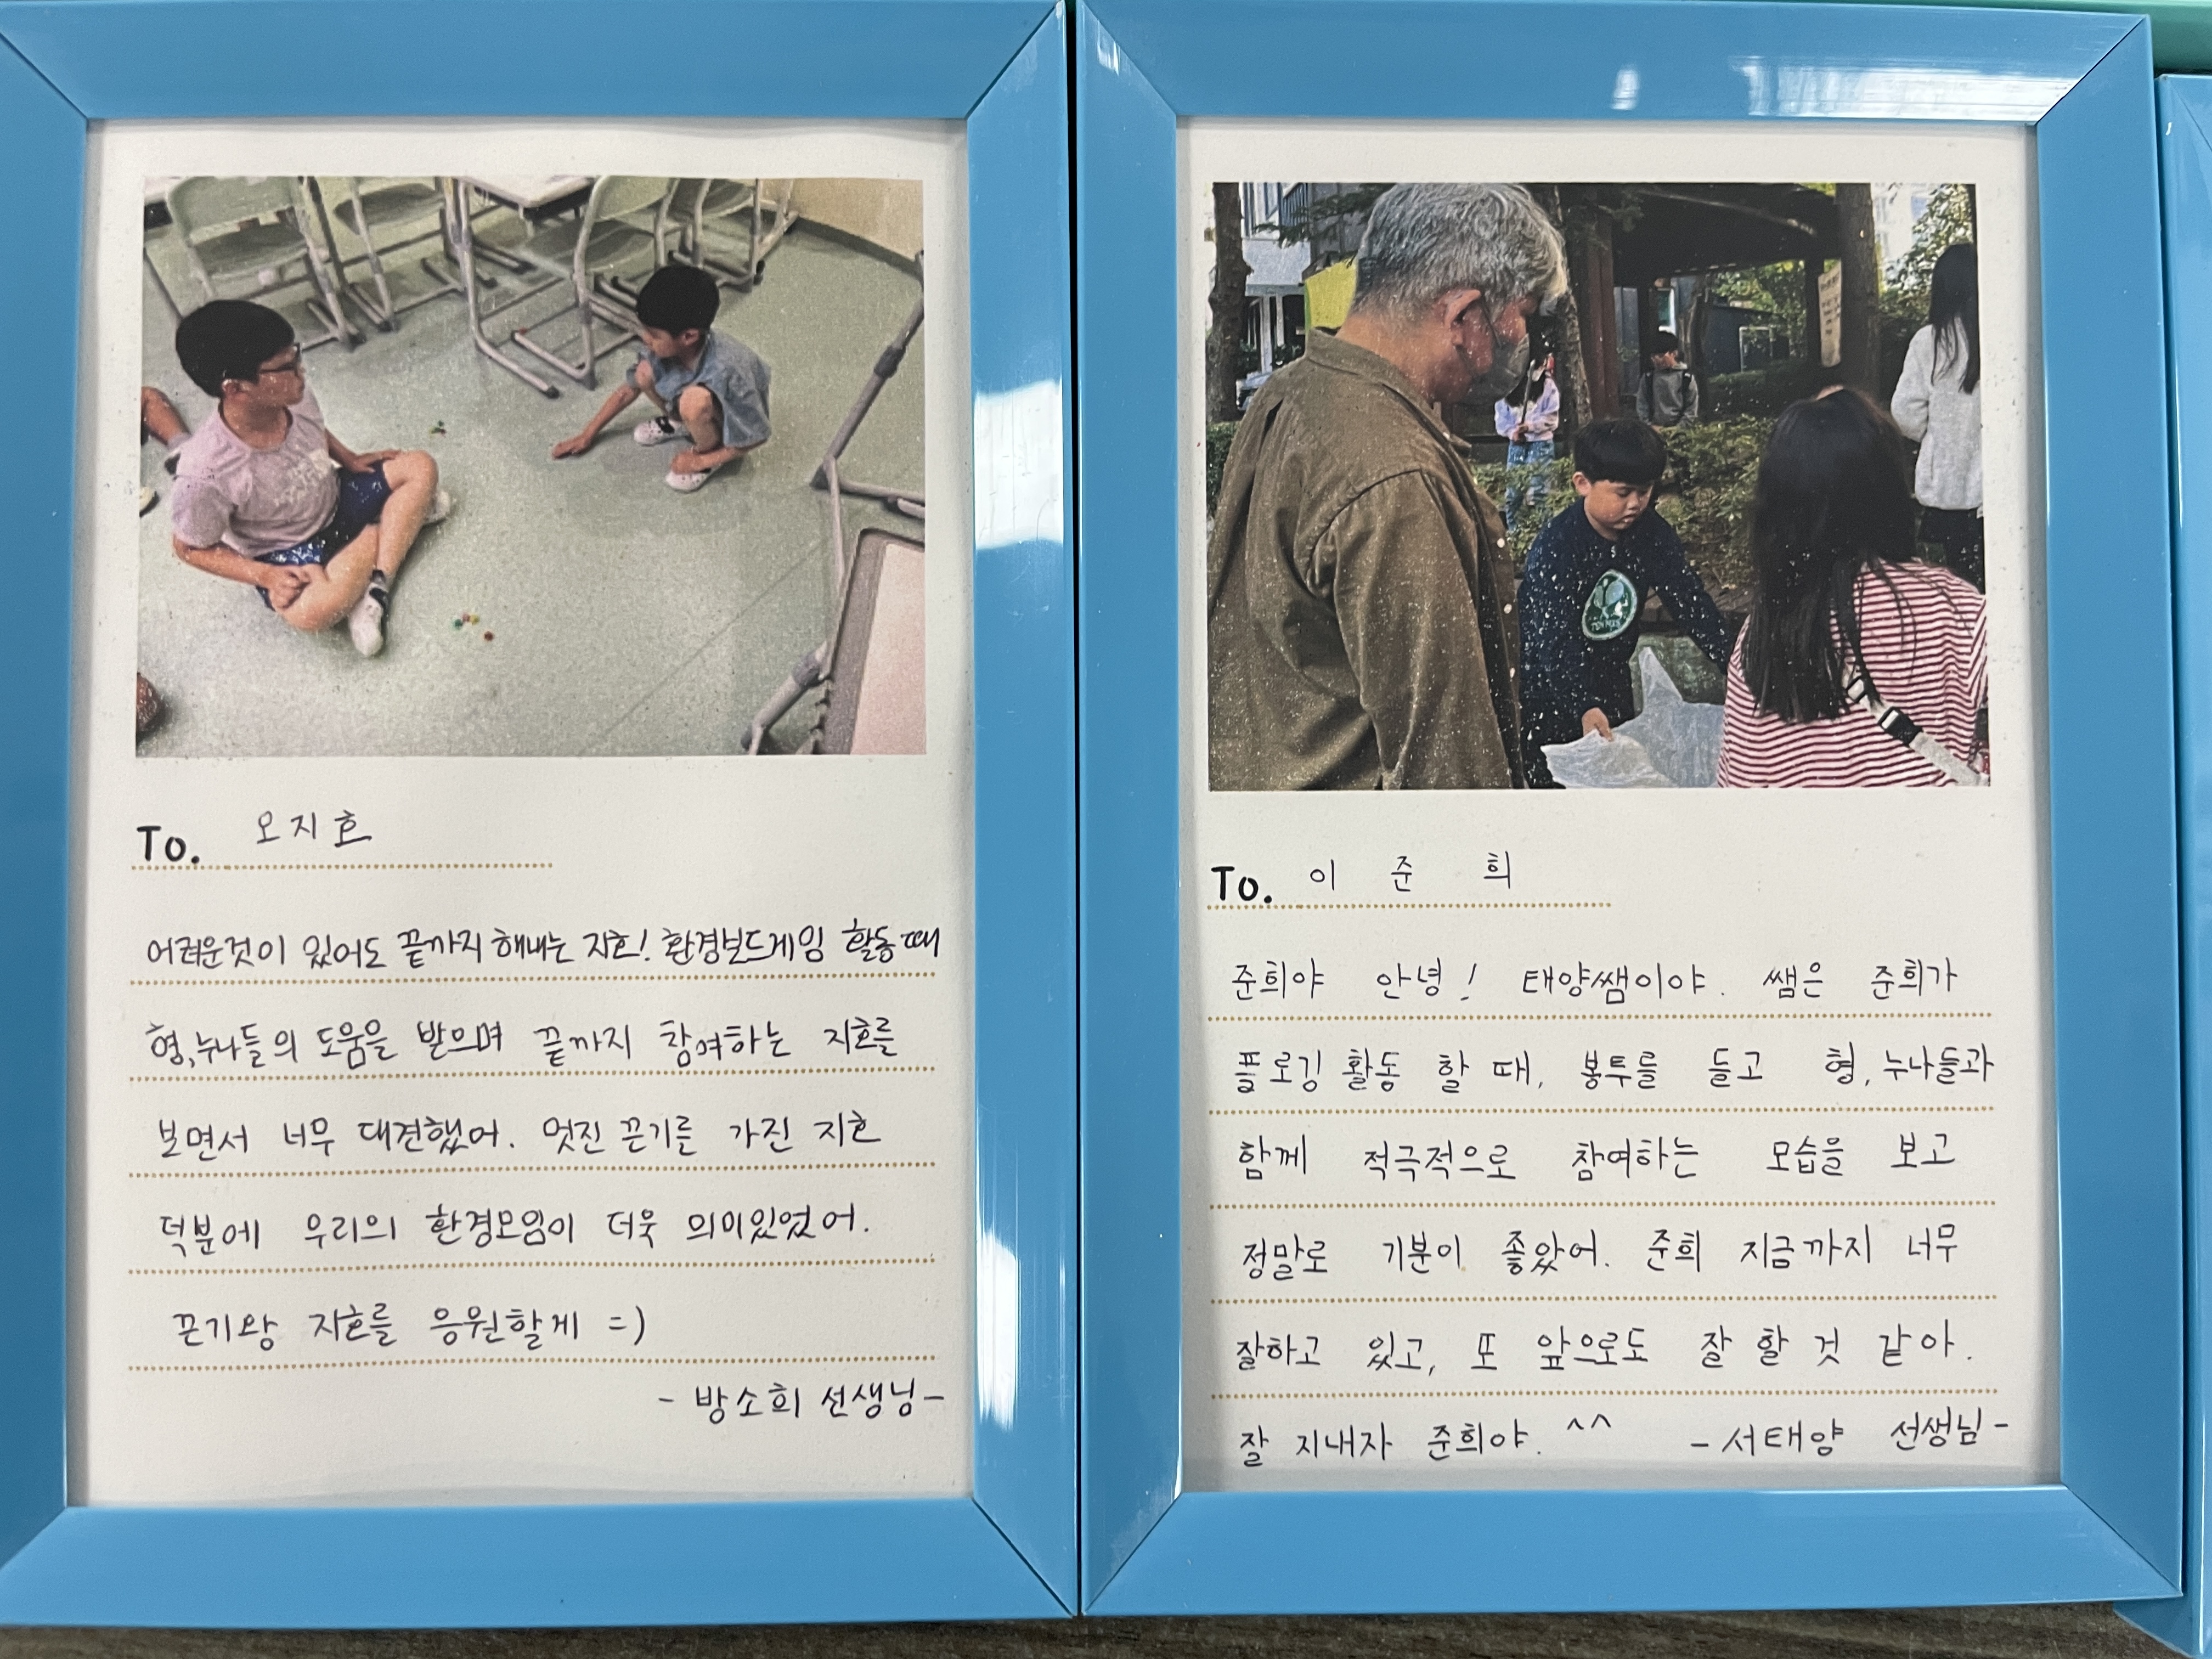 To. 오지호
어려운것이 있어도 끝까지 해내는 지호! 환경보드게임 활동때
형,누나들의 도움을 받으며 끝까지 참여하는 지호를
보면서 너무 대견했어. 멋진 끈기를 가진 지호
덕분에 우리의 환경모임이 더욱 의미있었어.
끈기왕 지호를 응원할게 =)
- 방소희 선생님-
To. 이 준 희
준희야 안녕! 태양쌤이야. 쌤은 준희가
플로깅 활동 할 때, 봉투를 들고 형, 누나들과
함께 적극적으로 참여하는 모습을 보고
정말로 기분이 좋았어. 준희 지금까지 너무
잘하고 있고, 또 앞으로도 잘 할 것 같아.
잘 지내자 준희야. ^^ -서태양 선생님-